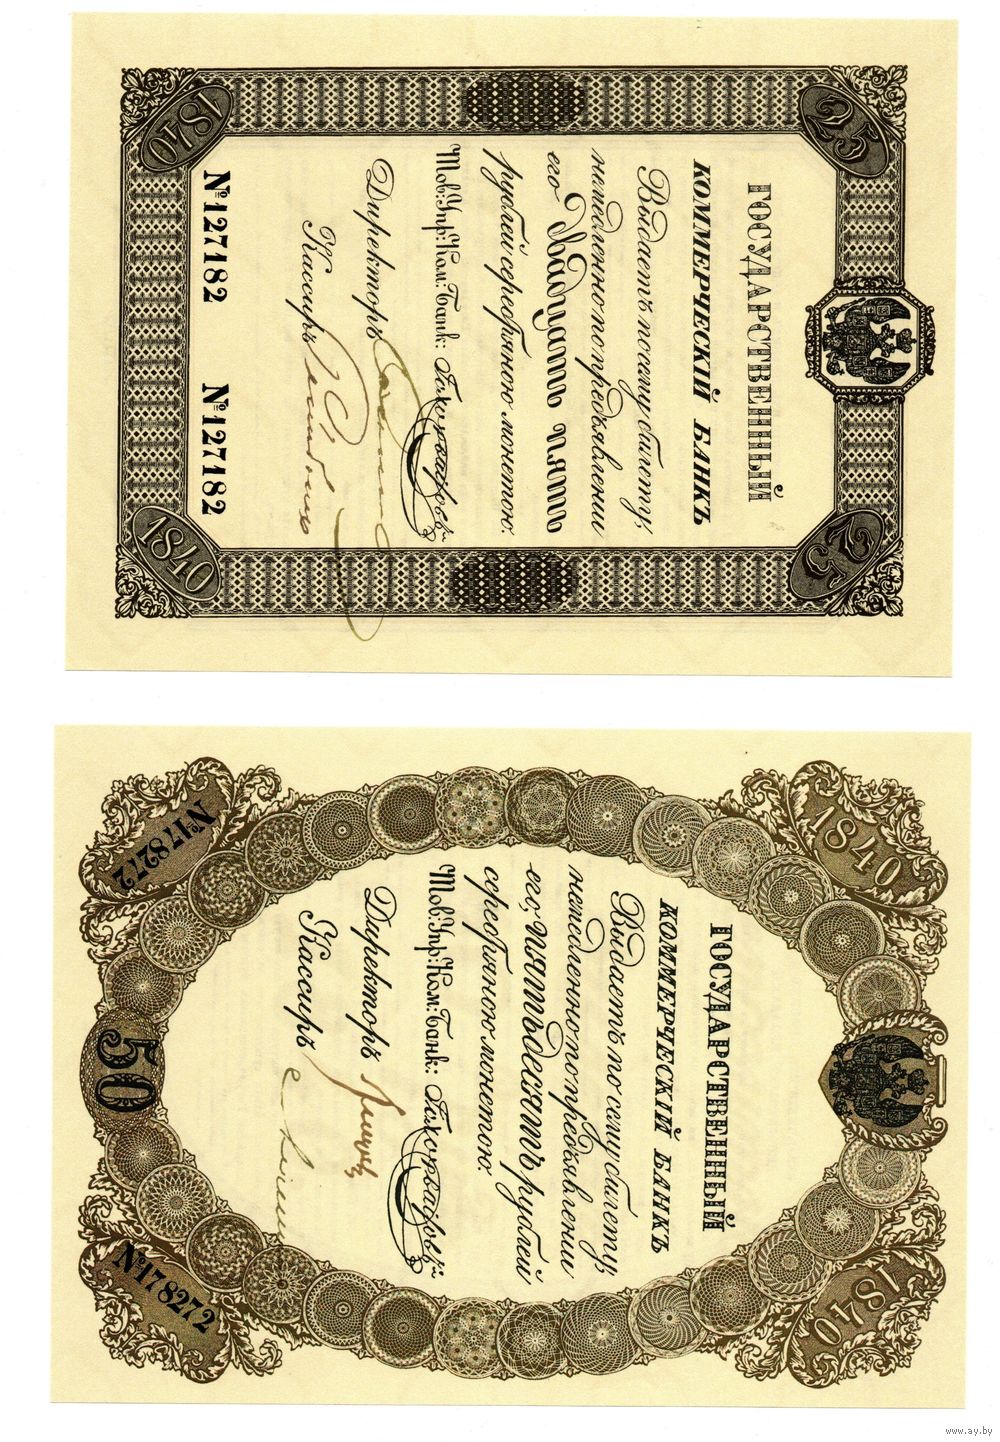 25
25
ГОСУДАРСТВЕННЫЙ
КОММЕРЧЕСКІЙ БАНКЪ
Выдаетъ по сему билету,
немедленно по предъявленіи
его Двадцать пять
рублей серебряною монетою.
Тов: Упр: Ком: Банк:
Директоръ
Кассиръ
№127182 №127182
1840
1840
1840
1840
ГОСУДАРСТВЕННЫЙ
КОММЕРЧЕСКІЙ БАНКЪ
Выдаетъ по сему билету,
немедленно по предъявленіи
его, пятьдесятъ рублей
серебряною монетою.
Тов: Упр: Ком: Банк:
Директоръ
Кассиръ
№178272
50
№178272
www.ay.by